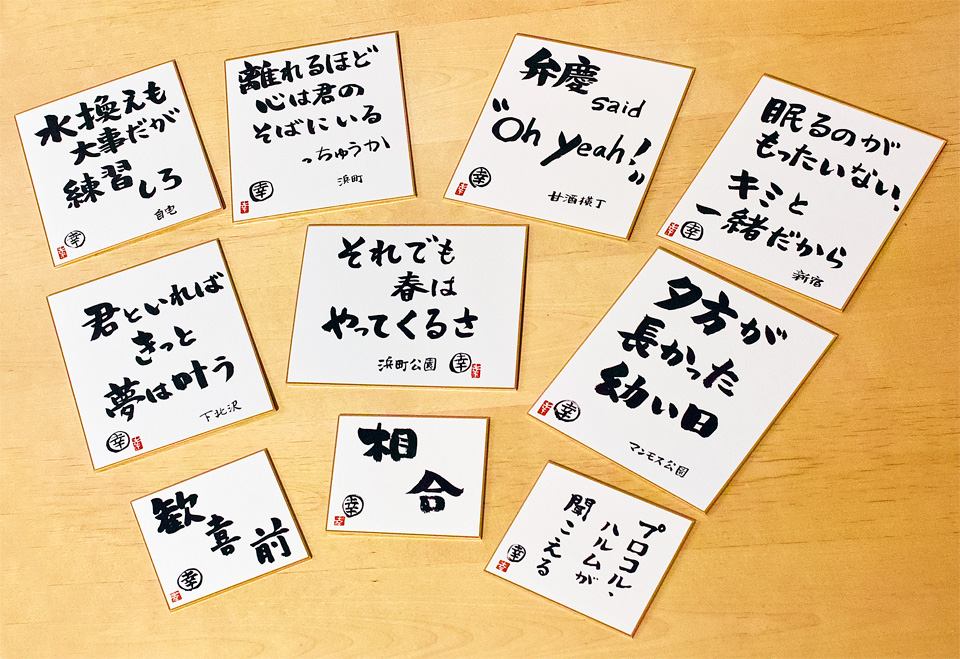 水換えも
大事だが
練習しろ
自宅
幸
幸
離れるほど
心は君の
そばにいる
っちゅうか
浜町
幸
幸
弁慶
said
"Oh Yeah!"
甘酒横丁
幸
幸
眠るのが
もったいない、
キミと
一緒だから
新宿
幸
幸
君といれば
きっと
夢は叶う
下北沢
幸
幸
それでも
春は
やってくるさ
浜町公園
幸
幸
夕方が
長かった
幼い日
マンモス公園
幸
幸
歓
喜
前
幸
幸
相
合
幸
幸
プロコル、
ハルムが
聞こえる
幸
幸